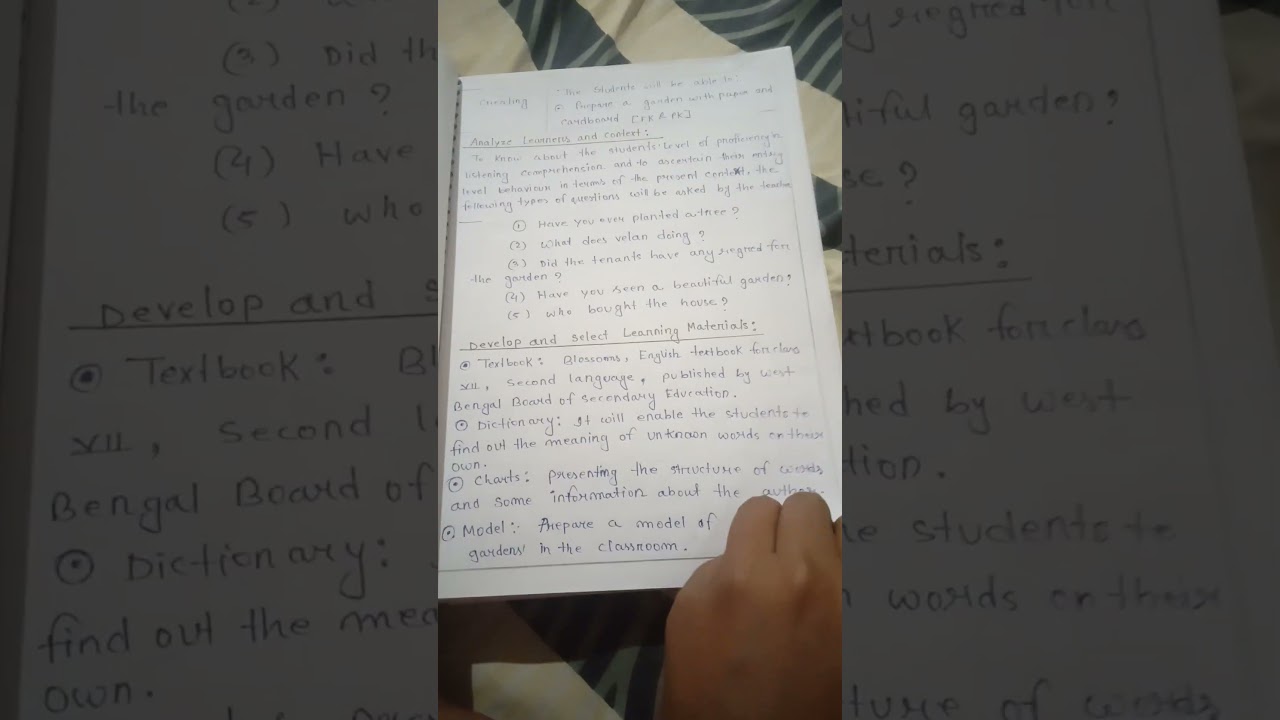 Creating
The Students will be able to:
Prepare a garden with paper and
cardboard [FK & PK]
Analyze Learners and Context:
To know about the students' level of proficiency in
listening comprehension and to ascertain their entry
level behaviour in terms of the present context, the
following types of questions will be asked by the teacher
(1) Have you ever planted a tree?
(2) What does velan doing?
(3) Did the tenants have any regred for
the garden?
(4) Have you seen a beautiful garden?
(5) Who bought the house?
Develop and select Learning Materials:
Textbook: Blossoms, English textbook for class
VII, second language, published by West
Bengal Board of secondary Education.
Dictionary: It will enable the students to
find out the meaning of unknown words on their
own.
Charts: presenting the structure of words
and some information about the author.
Model: Prepare a model of
gardens' in the classroom.